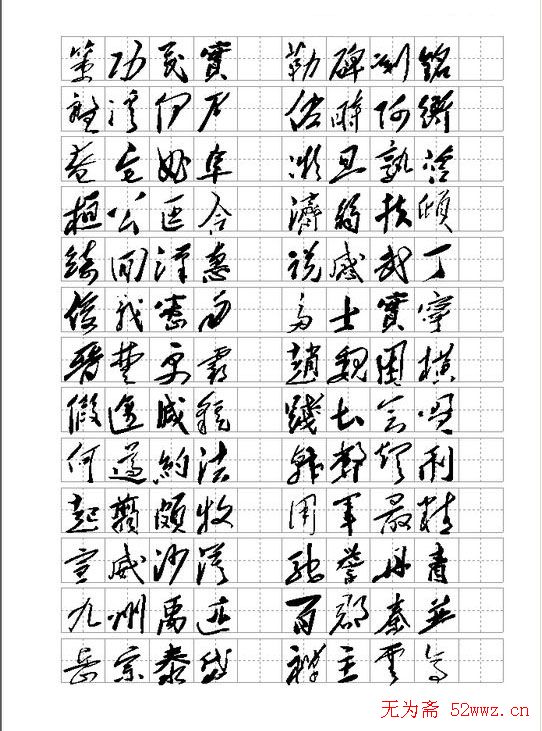 策功茂實 勒碑刻銘
磻溪伊尹 佐時阿衡
奄宅曲阜 微旦孰營
桓公匡合 濟弱扶傾
綺回漢惠 說感武丁
俊乂密勿 多士實寧
晉楚更霸 趙魏困橫
假途滅虢 踐土會盟
何遵約法 韓弊煩刑
起翦頗牧 用軍最精
宣威沙漠 馳譽丹青
九州禹迹 百郡秦并
岳宗泰岱 禪主云亭
无为斋 52wwz.cn